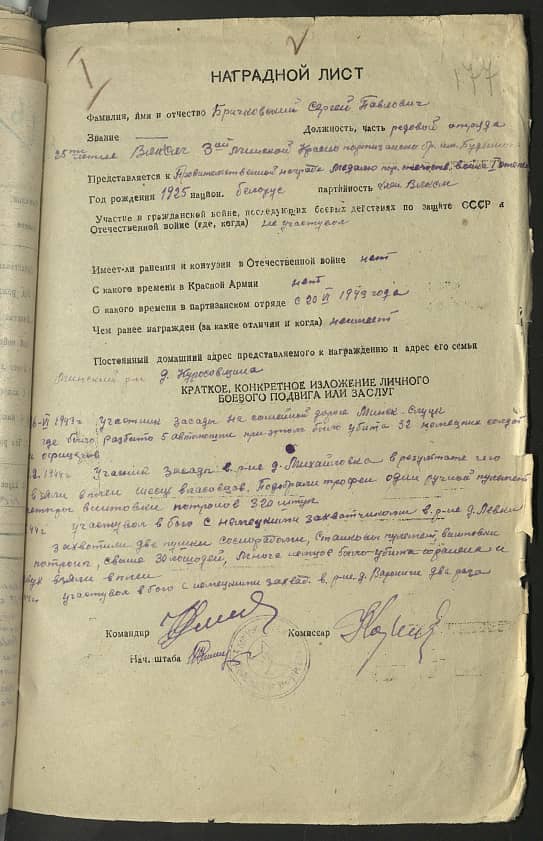 177
НАГРАДНОЙ ЛИСТ
Фамилия, имя и отчество Брачковский Сергей Павлович
Звание — Должность, часть рядовой отряда
25 летие ВЛКСМ 3ей Минской партизанской бр. им. Буденного
Представляется к Правительственной награде медалью
Год рождения 1925 национ. белорус партийность член ВЛКСМ
Участие в гражданской войне, последующих боевых действиях по защите СССР и
Отечественной войне (где, когда) не участвовал
Имеет-ли ранения и контузии в Отечественной войне нет
С какого времени в Красной Армии нет
С какого времени в партизанском отряде с 20 VI 1943 года
Чем ранее награжден (за какие отличия и когда)
Постоянный домашний адрес представляемого к награждению и адрес его семьи
Минский р-н д. Куросовщина
КРАТКОЕ, КОНКРЕТНОЕ ИЗЛОЖЕНИЕ ЛИЧНОГО
БОЕВОГО ПОДВИГА ИЛИ ЗАСЛУГ
VI 1943 г. участник засады на дороге Минск-Слуцк
где было разбито 5 автомашин при этом было убито 32 немецких солдат
и офицеров
1944 г. Участник засады в р-не д. Михайловка в результате чего
взяли в плен шесть власовцев. Подобрали трофеи один ручной пулемет
винтовки патронов 320 штук
участвовал в бою с немецкими захватчиками в р-не д.
захватили две пушки, станковый пулемет, винтовки
патроны, свыше 30 лошадей, много немцев было убито и ранено и
двух взяли в плен
участвовал в бою с немецкими захват. в р-не д. два раза
Командир
Комиссар
Нач. штаба